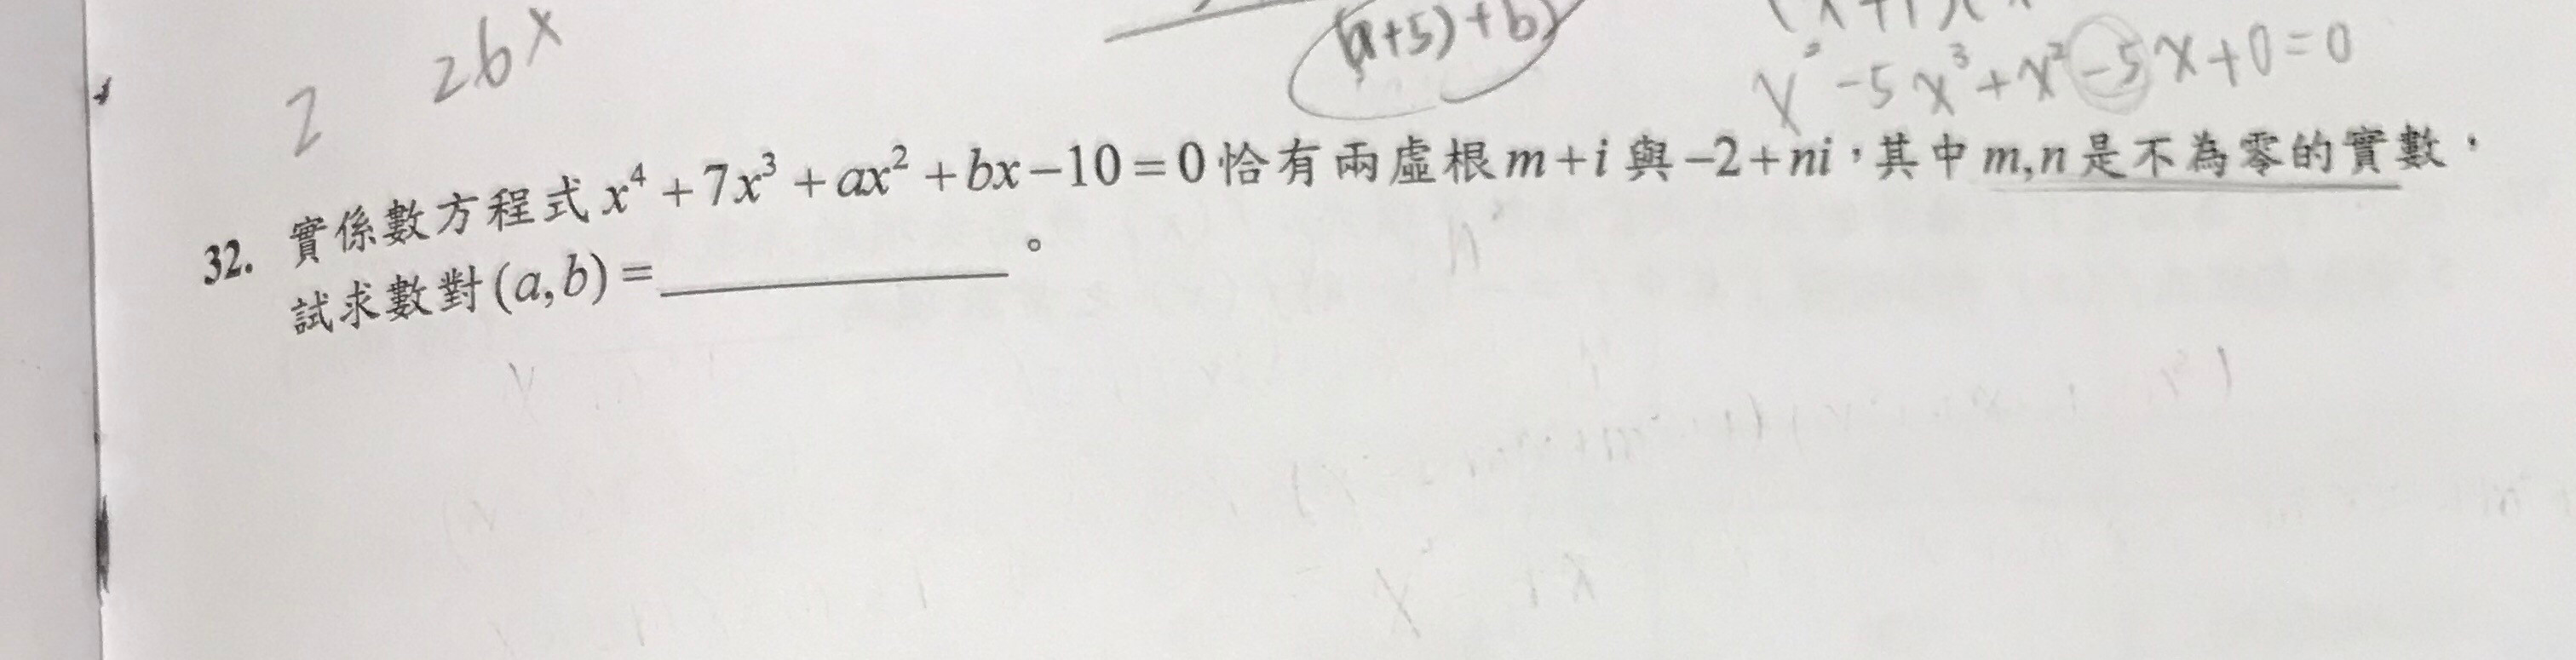 2 26x
(a+5)+b)
-5x³+x²-5x+0=0
32. 實係數方程式 x⁴+7x³+ax²+bx-10=0 恰有兩虛根 m+i 與 -2+ni,其中 m,n 是不為零的實數,
試求數對(a,b)=__________。